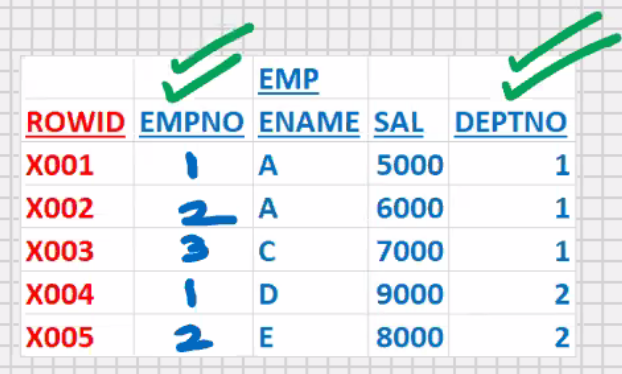 EMP
ROWID EMPNO ENAME SAL DEPTNO
X001 1 A 5000 1
X002 2 A 6000 1
X003 3 C 7000 1
X004 1 D 9000 2
X005 2 E 8000 2